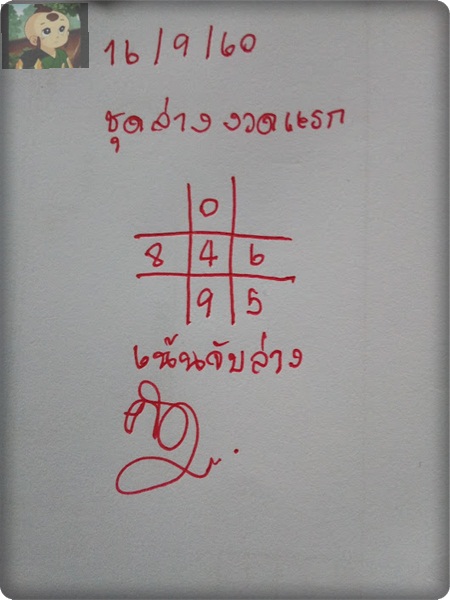 16/9/60
ชุดล่าง งวดแรก
0
8 4 6
9 5
เน้นจับล่าง